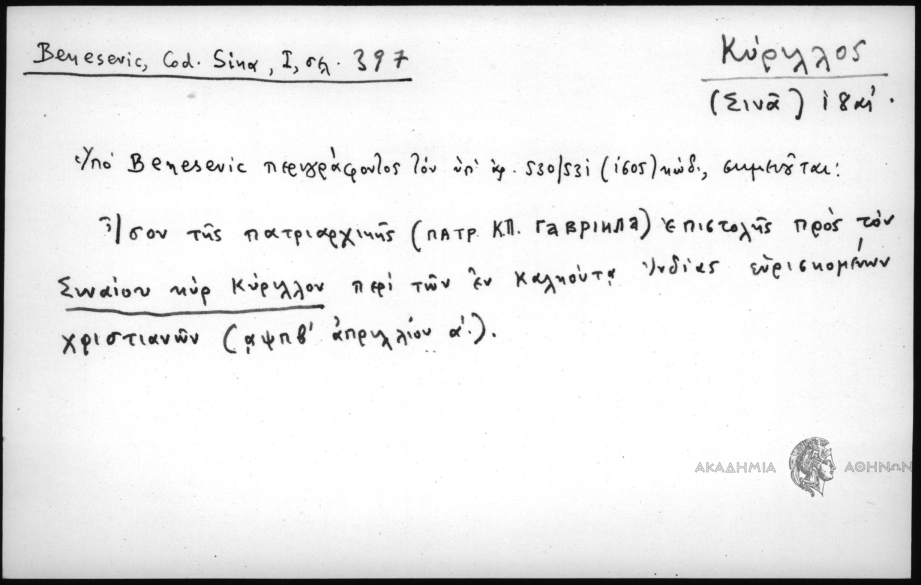 Benesevic, Cod. Sina, I, σελ. 397
Κύριλλος
(Σινᾶ) 18 αἰ.
Ὑπό Benesevic περιγράφοντος τόν ὑπ' ἀρ. 530/531 (1605) κώδ., σημειοῦται:
Ἴσον τῆς πατριαρχικῆς (ΠΑΤΡ. ΚΠ. ΓΑΒΡΙΗΛ) ἐπιστολῆς πρὸς τὸν
Σιναίου κύρ Κύριλλον περί τῶν ἐν Καλκούτᾳ Ἰνδίας εὑρισκομένων
χριστιανῶν (αψπβ' ἀπριλλίου α'.).
ΑΚΑΔΗΜΙΑ ΑΘΗΝΩΝ